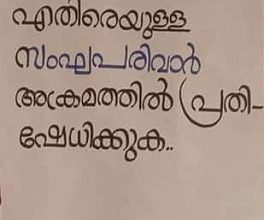 എതിരെയുള്ള
സംഘപരിവാർ
അക്രമത്തിൽ പ്രതി-
ഷേധിക്കുക..